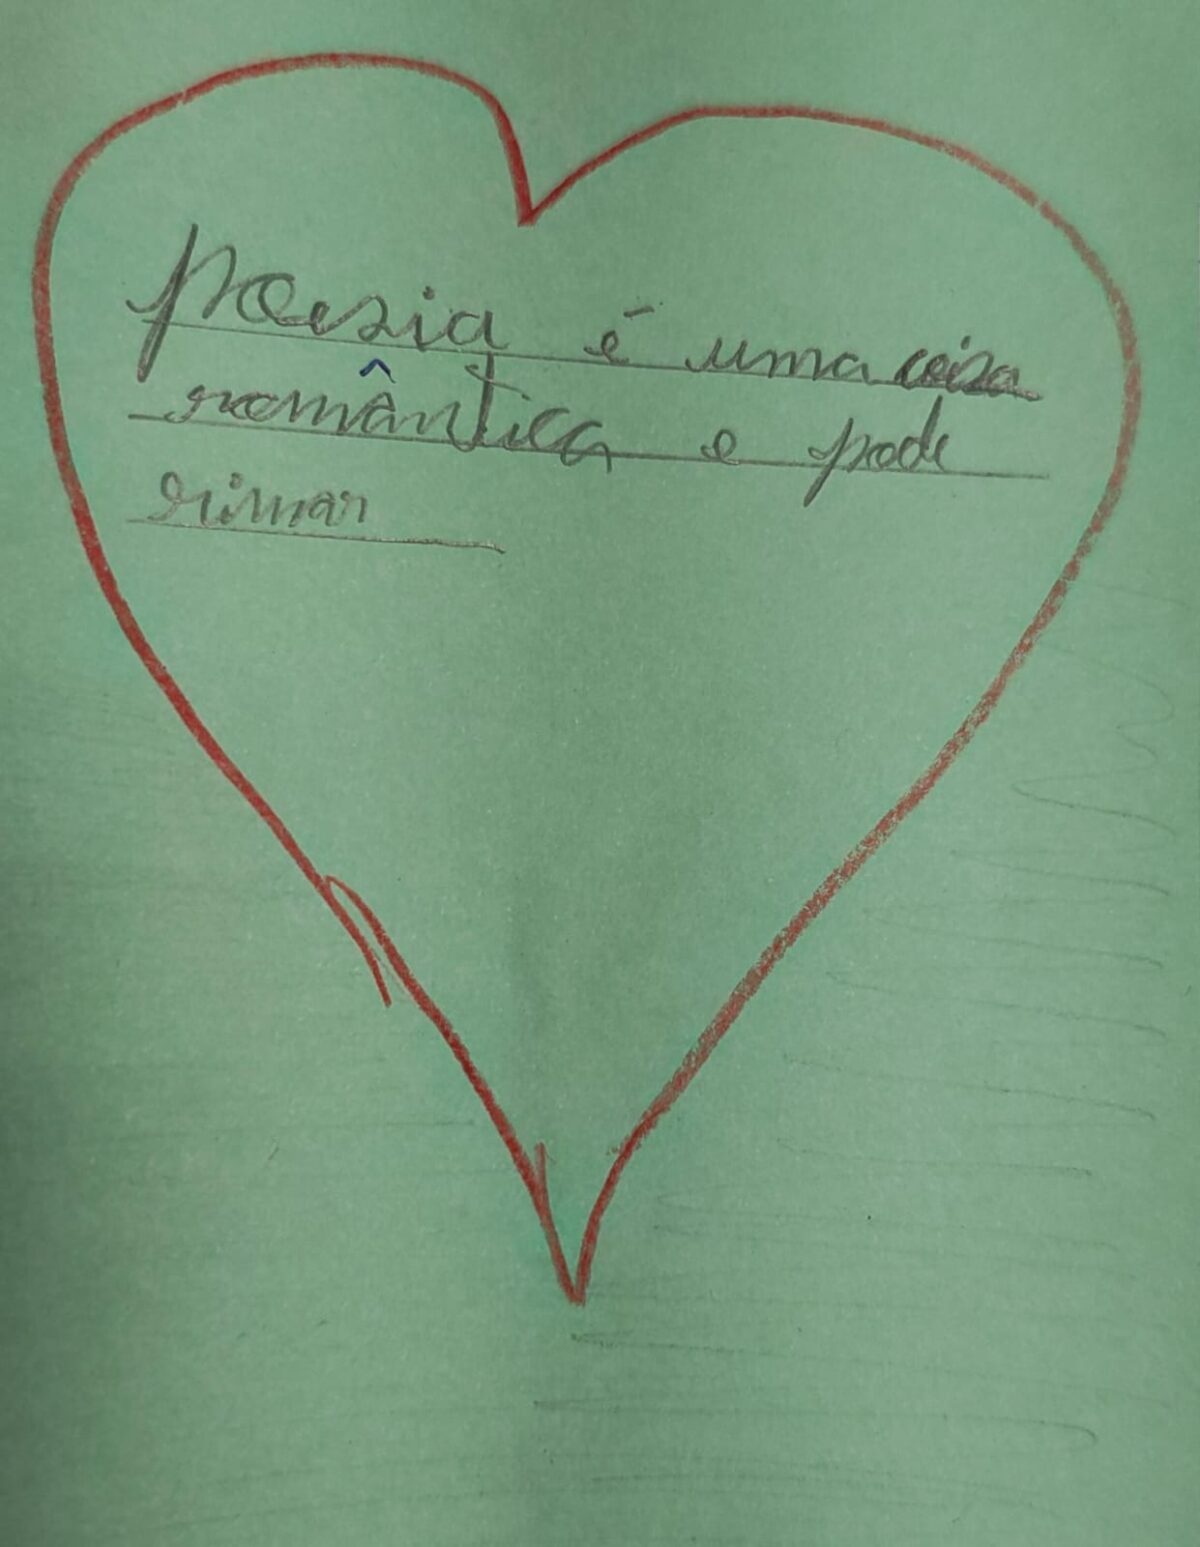 poesia é uma coisa
romântica e pode
rimar